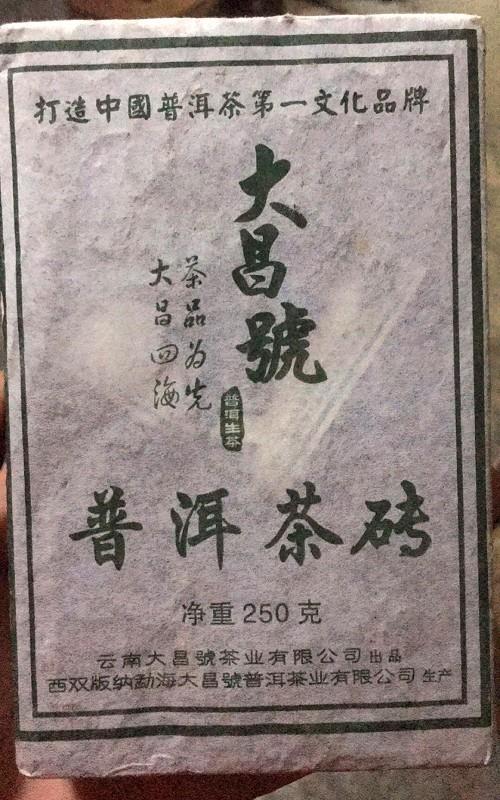 打造中國普洱茶第一文化品牌
大昌號
茶品为先
大昌四海
普洱生茶
普洱茶砖
净重 250 克
云南大昌號茶业有限公司 出品
西双版纳勐海大昌號普洱茶业有限公司 生产